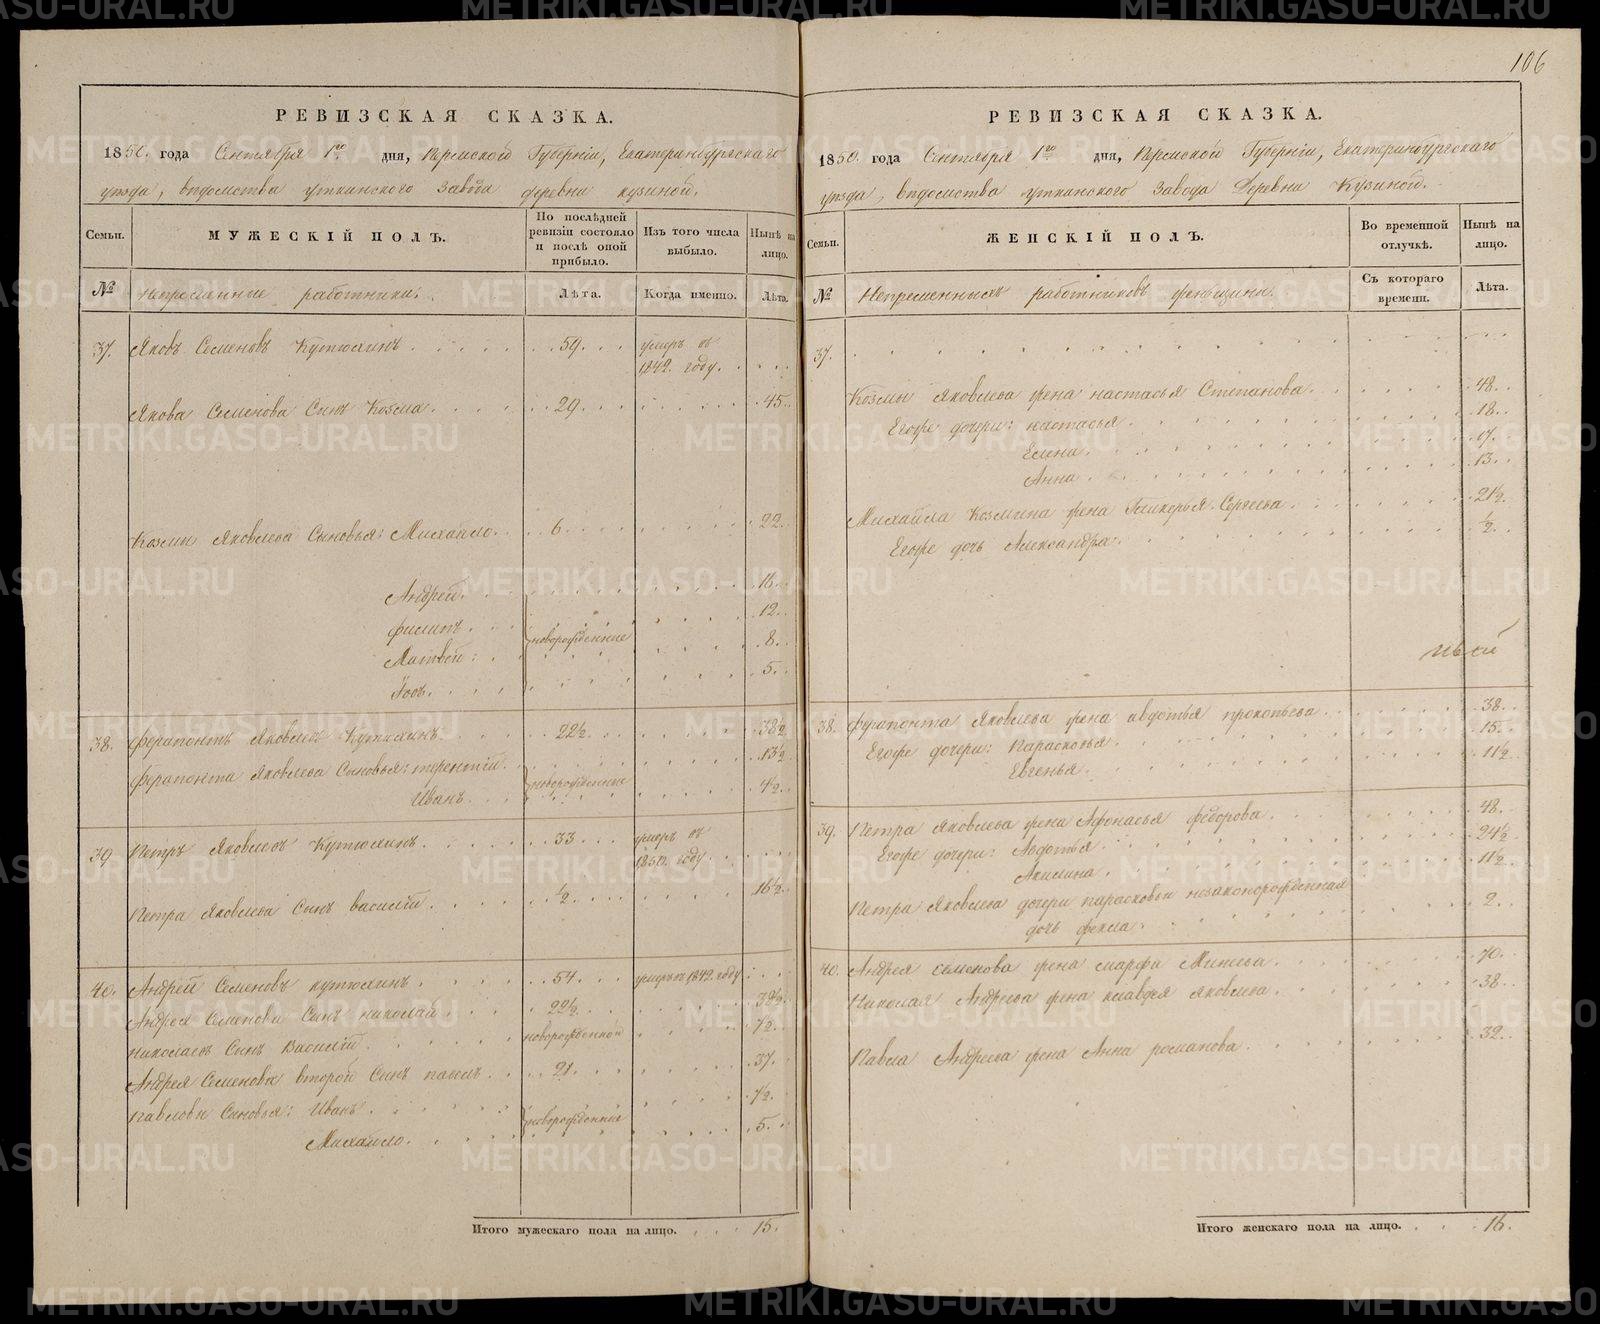 106
РЕВИЗСКАЯ СКАЗКА.
1850. года Сентября 1го дня, Пермской Губерніи, Екатеринбургскаго
уезда, ведомства уткинскаго Завода деревни кузиной.
Семьи.
МУЖЕСКІЙ ПОЛЪ.
По послѣдней ревизіи состояло и послѣ оной прибыло.
Изъ того числа выбыло.
Нынѣ на лицо.
№
Непременные работники:
Лѣта.
Когда именно.
Лѣта.
37. Яковъ Семеновъ Кутюхинъ 59. умеръ въ
1842. году.
Якова Семенова Сынъ Козма 29. 45.
Козмы Яковлева Сыновья: Михайло 6. 22.
Андрей. 16.
Филипъ 12.
новорожденные
Матвей: 8.
5.
38. Ферапонтъ Яковлевъ Кутюхинъ 22½. 38½
Ферапонта Яковлева Сыновья: терентій 13½
новорожденные
Иванъ 4½.
39. Петръ Яковлевъ Кутюхинъ 33 умеръ въ
1850. году
Петра Яковлева Сынъ василій ½ 16½.
40. Андрей Семеновъ кутюхинъ 54. умеръ 1842. году
Андрея Семенова Сынъ николай 22½ 38½
Николаевъ Сынъ Василій новорожденной ½.
Андрея Семенова второй Сынъ павелъ 21. 37.
Павловы Сыновья: Иванъ ½.
новорожденные
Михайло 5.
Итого мужескаго пола на лицо. 15.
РЕВИЗСКАЯ СКАЗКА.
1850. года Сентября 1го дня, Пермской Губерніи, Екатеринбургскаго
уезда, ведомства уткинскаго Завода Деревни Кузиной.
Семьи.
ЖЕНСКІЙ ПОЛЪ.
Во временной отлучкѣ.
Нынѣ на лицо.
№
Непременныхъ работниковъ женщины.
Съ котораго времени.
Лѣта.
37.
Козмы Яковлева жена настасья Степанова 48.
Егоже дочери: настасья 18.
Елена 17.
Анна 13.
Михайла Козмина жена Гликерья Сергеева 21½.
Егоже дочь Александра ½.
38. Ферапонта Яковлева жена авдотья прокопьева 38.
Егоже дочери: Парасковья 15.
Евгенья 11½
39. Петра Яковлева жена Афонасья федорова 48.
Егоже дочери: Авдотья 24½
Акилина 11½
Петра Яковлева дочери парасковьи незаконорожденная
дочь фекла. 2.
40. Андрея семенова жена марфа Минеева 70.
Николая Андреева жена клавдея яковлева 38.
Павла Андреева жена Анна романова 32.
Итого женскаго пола на лицо. 16.
METRIKI.GASO-URAL.RU